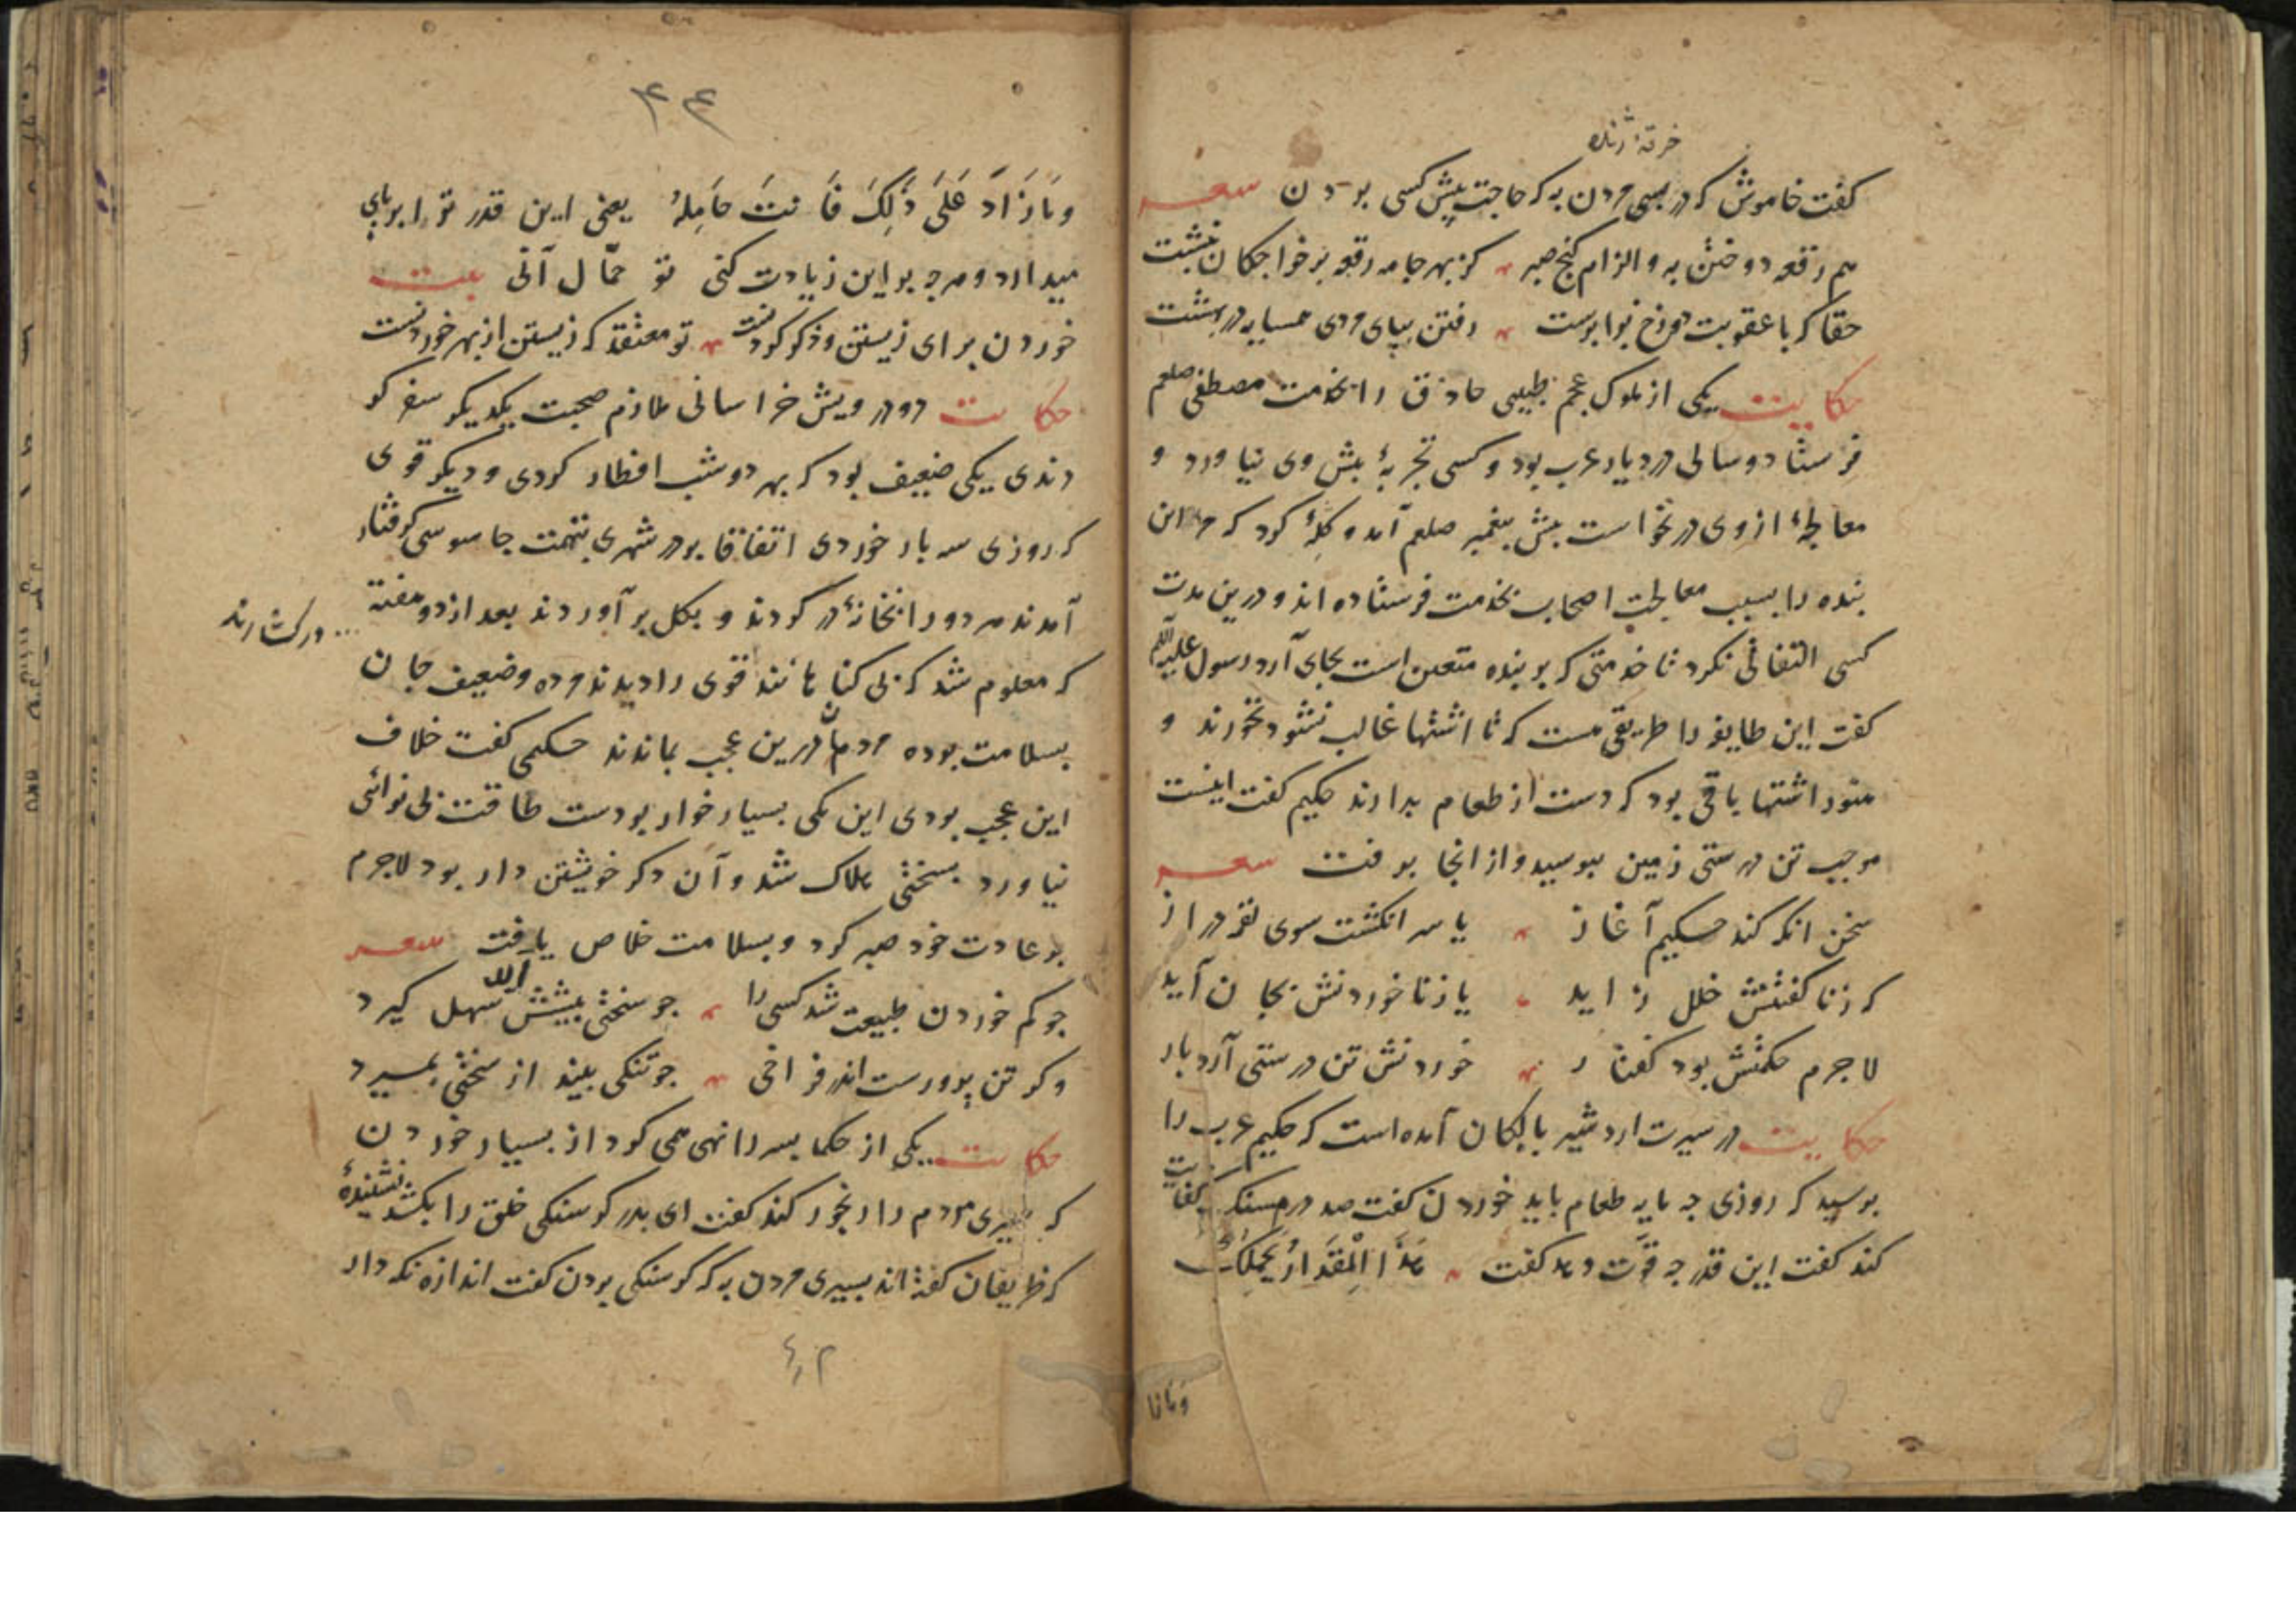 خرقهٔ ژنده
کفت خاموش که در بسی مردن به که حاجت پیش کسی بردن شعر
هم رقعه دوختن به و الزام کنج صبر کز بهر جامه رقعه بر خواجکان نبشت
حقا که با عقوبت دوزخ برابرست رفتن بپای مردی همسایه در بهشت
حکایت یکی از ملوک عجم طبیبی حاذق را بخدمت مصطفی صلعم
فرستاد و سالی در دیار عرب بود و کسی تجربهٔ پیش وی نیاورد و
معالجهٔ ازوی در نخواست پیش پیغمبر صلعم آمد و کلهٔ کرد که مر این
بنده را بسبب معالجت اصحاب بخدمت فرستاده اند و درین مدت
کسی التفاتی نکرد تا خدمتی که بر بنده متعین است بجای آرد رسول علیه
کفت این طایفه را طریقی هست که تا اشتها غالب نشود نخورند و
هنوز اشتها باقی بود که دست از طعام بدارند حکیم کفت اینست
موجب تن درستی زمین ببوسید و از انجا برفت شعر
سخن انکه کند حکیم آغاز یا سر انکشت سوی لقمه دراز
که زنا کفتنش خلل زاید یا زنا خوردنش بجان آید
لاجرم حکمتش بود کفتار خوردنش تن درستی آرد بار
حکایت در سیرت اردشیر بابکان آمده است که حکیم عرب را
پرسید که روزی چه مایه طعام باید خوردن کفت صد درم سنک کفایت
کند کفت این قدر چه قوّت دهد کفت هَذَا الْمِقدَارُ یَحمِلُکَ
وما زا
۴۴
وَمَا زَادَ عَلَی ذَلِکَ فَانتَ حَامِلُهُ یعنی این قدر ترا برپای
میدارد و هرچه برین زیادت کنی تو حمّال آنی بیت
خوردن برای زیستن و ذکر کردنست تو معتقد که زیستن از بهر خوردنست
حکایت دو درویش خراسانی ملازم صحبت یکدیکر سفر کر
دندی یکی ضعیف بود که بهر دو شب افطار کردی و دیکر قوی
که روزی سه بار خوردی اتفاقا بر در شهری بتهمت جاسوسی کرفتار
آمدند هر دو را بخانهٔ در کردند و بکل بر آوردند بعد از دو هفته
که معلوم شد که بی کناهانند قوی را دیدند مرده و ضعیف جان
بسلامت برده مردم در این عجب بماندند حکیمی کفت خلاف
این عجب بودی این یکی بسیار خوار بودست طاقت بی نوائی
نیاورد بسختی هلاک شد و آن دکر خویشتن دار بود لاجرم
بر عادت خود صبر کرد و بسلامت خلاص یافت شعر
چو کم خوردن طبیعت شد کسی را چو سختی پیشش آید سهل کیرد
وکر تن پرورست اندر فراخی چو تنکی بیند از سختی بمیرد
حکایت یکی از حکما پسر را نهی همی کرد از بسیار خوردن
که سیری مردم را رنجور کند کفت ای پدر کرسنکی خلق را بکشد نشنیدهٔ
که ظریفان کفته اند بسیری مردن به که کرسنکی بردن کفت اندازه نکه دار